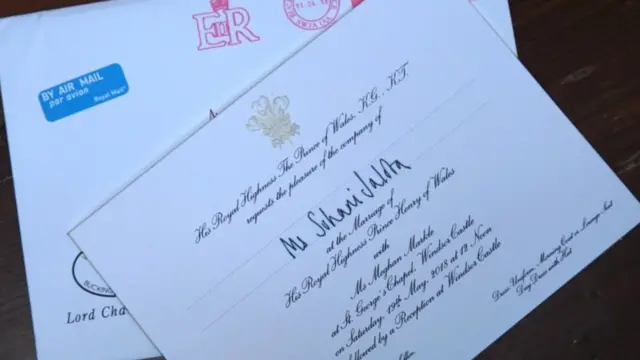 E R
BY AIR MAIL
par avion
Royal Mail
His Royal Highness The Prince of Wales, K.G., K.T.
requests the pleasure of the company of
at the Marriage of
His Royal Highness Prince Henry of Wales
with
Ms Meghan Markle
at St. George's Chapel, Windsor Castle
on Saturday, 19th May, 2018 at 12 Noon
followed by a Reception at Windsor Castle
Dress: Uniform, Morning Coat or Lounge Suit
Day Dress with Hat
Lord Cha